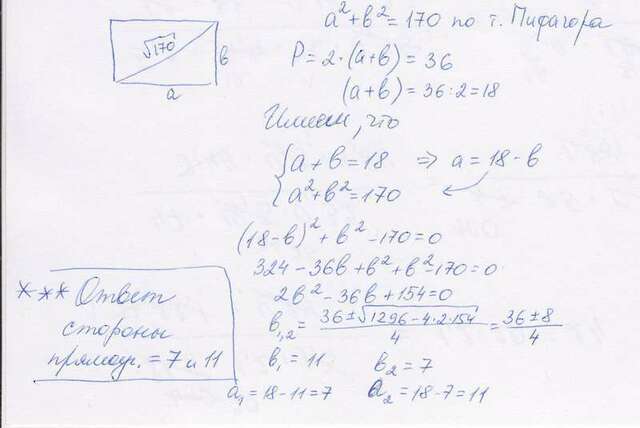 √170
a
b
a² + b² = 170 по т. Пифагора
P = 2·(a+b) = 36
(a+b) = 36:2 = 18
Имеем, что
{ a + b = 18 ⇒ a = 18 - b
{ a² + b² = 170
(18-b)² + b² - 170 = 0
324 - 36b + b² + b² - 170 = 0
2b² - 36b + 154 = 0
b₁,₂ = (36 ± √(1296 - 4·2·154))/4 = (36 ± 8)/4
b₁ = 11 b₂ = 7
a₁ = 18 - 11 = 7 a₂ = 18 - 7 = 11
*** Ответ
стороны
прямоуг. = 7 и 11